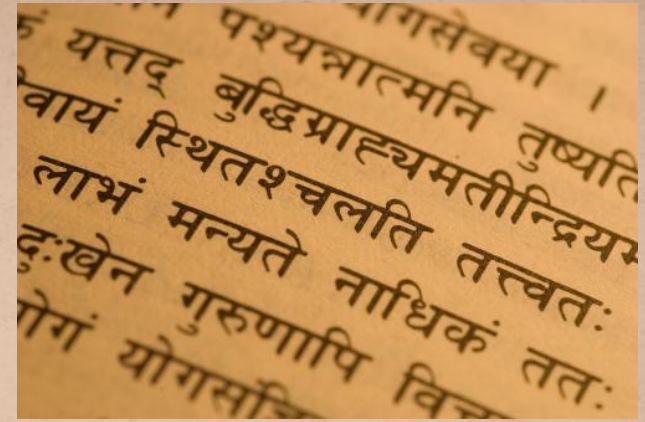 योगसेवया ।
पश्यन्नात्मनि तुष्यति
यत्तद् बुद्धिग्राह्यमतीन्द्रियम
स्थितश्चलति तत्त्वतः
लाभं मन्यते नाधिकं ततः
दुःखेन गुरुणापि